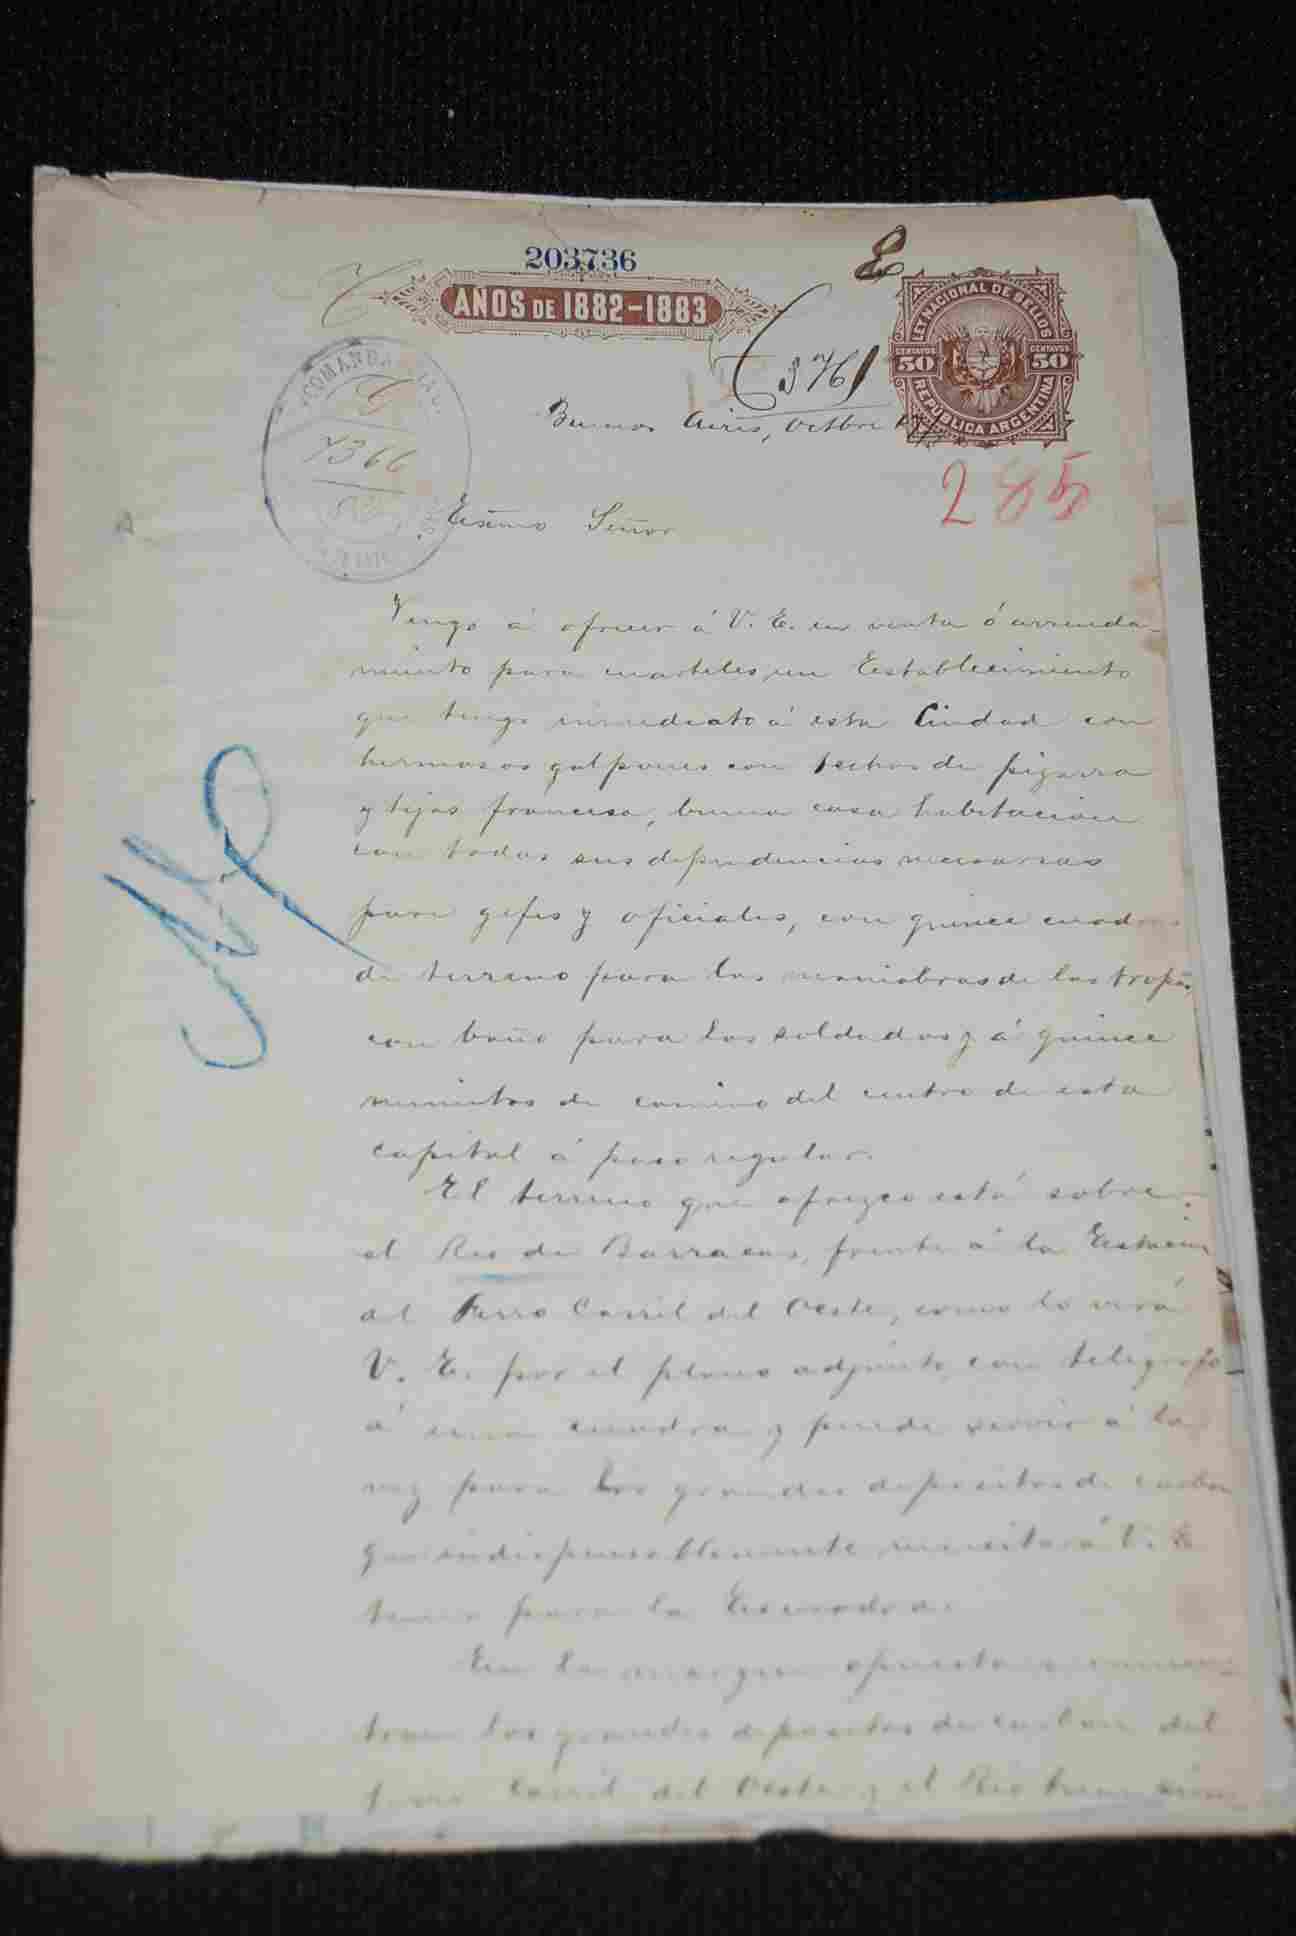 203736
AÑOS DE 1882-1883
E
LEY NACIONAL DE SELLOS
CENTAVOS 50
CENTAVOS 50
REPUBLICA ARGENTINA
3761
Buenos Aires, Octbre
285
COMANDANCIA
G
7366
Exsmo Señor
Vengo á ofrecer á V. E. en venta ó arrenda-
miento para cuarteles, un Establecimiento
que tengo inmediato á esta Ciudad con
hermosos galpones con techos de pizarra
y tejas francesa, buena casa habitacion
con todas sus dependencias necesarias
para gefes y oficiales, con quince cuadras
de terreno para las maniobras de las tropas,
con baño para los soldados y á quince
minutos de camino del centro de esta
capital á paso regular.
El terreno que ofrezco está sobre
el Rio de Barracas, frente á la Estacion
del Ferro Carril del Oeste, como lo verá
V. E. por el plano adjunto, con telegrafo
á una cuadra y puede servir á la
vez para los grandes depositos de carbon
que indispensablemente necesitará V. E.
tener para la Escuadra.
En la margen opuesta se encuen-
tran los grandes depositos de carbon del
Ferro Carril del Oeste y el Rio tiene